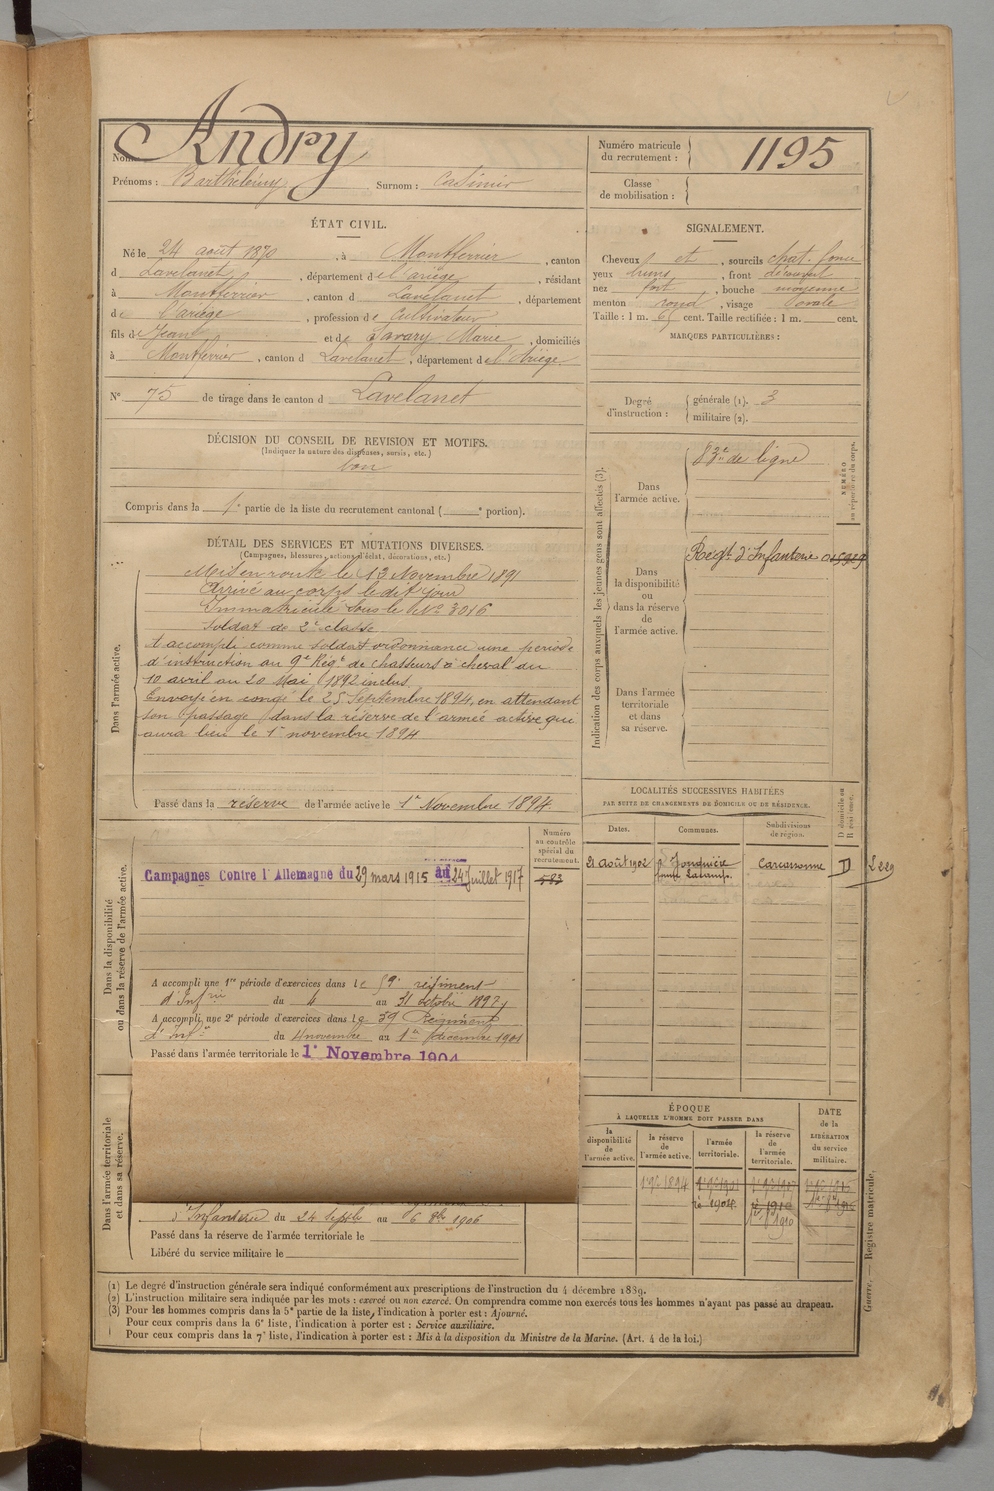 Andry
Nom
Prénoms : Barthélémy Surnom : Casimir
Numéro matricule du recrutement : 1195
Classe de mobilisation :
ÉTAT CIVIL.
Né le 24 août 1870, à Montferrier, canton
d Lavelanet, département de l'Ariège, résidant
à Montferrier, canton d Lavelanet, département
de l'ariège, profession de Cultivateur
fils de Jean et de Savary Marie, domiciliés
à Montferrier, canton d Lavelanet, département de l'Ariège.
N° 75 de tirage dans le canton d Lavelanet
SIGNALEMENT.
Cheveux et, sourcils chat. foncé
yeux bruns, front découvert
nez fort, bouche moyenne
menton rond, visage ovale
Taille : 1 m. 65 cent. Taille rectifiée : 1 m. cent.
MARQUES PARTICULIÈRES :
Degré d'instruction : générale (1). 3
militaire (2).
DÉCISION DU CONSEIL DE REVISION ET MOTIFS.
(Indiquer la nature des dispenses, sursis, etc.)
bon
Compris dans la 1e partie de la liste du recrutement cantonal ( e portion).
DÉTAIL DES SERVICES ET MUTATIONS DIVERSES.
(Campagnes, blessures, actions d'éclat, décorations, etc.)
Dans l'armée active.
Mis en route le 13 Novembre 1891
Arrivé au corps le dit jour
Immatriculé sous le N° 3016
Soldat de 2e classe
A accompli comme soldat ordonnance une période
d'instruction au 9e Régt de chasseurs à cheval du
10 avril au 20 Mai 1892 inclus.
Envoyé en congé le 25 Septembre 1894, en attendant
son passage dans la réserve de l'armée active qui
aura lieu le 1er novembre 1894
Passé dans la réserve de l'armée active le 1er Novembre 1894.
Indication des corps auxquels les jeunes gens sont affectés (3).
NUMÉRO au répertoire du corps.
Dans l'armée active.
83e de ligne
Dans la disponibilité ou dans la réserve de l'armée active.
Régt d'Infanterie
Dans l'armée territoriale et dans sa réserve.
LOCALITÉS SUCCESSIVES HABITÉES
PAR SUITE DE CHANGEMENTS DE DOMICILE OU DE RÉSIDENCE.
Dates. Communes. Subdivisions de région. D domicile ou R résidence.
21 Août 1902 Carcassonne D
Dans la disponibilité ou dans la réserve de l'armée active.
Numéro au contrôle spécial du recrutement.
583
Campagnes Contre l'Allemagne du 29 mars 1915 au 24 Juillet 1917
A accompli une 1re période d'exercices dans le 59e régiment
d'Infrie du 4 au 31 octobre 1897
A accompli une 2e période d'exercices dans le 59 Régiment
d'Infie du 4 novembre au 1er décembre 1901
Passé dans l'armée territoriale le 1er Novembre 1904
Dans l'armée territoriale et dans sa réserve.
d'Infanterie du 24 Septbre au 6 8bre 1906
Passé dans la réserve de l'armée territoriale le
Libéré du service militaire le
ÉPOQUE
À LAQUELLE L'HOMME DOIT PASSER DANS
la disponibilité de l'armée active. la réserve de l'armée active. l'armée territoriale. la réserve de l'armée territoriale.
DATE de la LIBÉRATION du service militaire.
(1) Le degré d'instruction générale sera indiqué conformément aux prescriptions de l'instruction du 4 décembre 1889.
(2) L'instruction militaire sera indiquée par les mots : exercé ou non exercé. On comprendra comme non exercés tous les hommes n'ayant pas passé au drapeau.
(3) Pour les hommes compris dans la 5e partie de la liste, l'indication à porter est : Ajourné.
Pour ceux compris dans la 6e liste, l'indication à porter est : Service auxiliaire.
Pour ceux compris dans la 7e liste, l'indication à porter est : Mis à la disposition du Ministre de la Marine. (Art. 4 de la loi.)
Guerre. — Registre matricule.